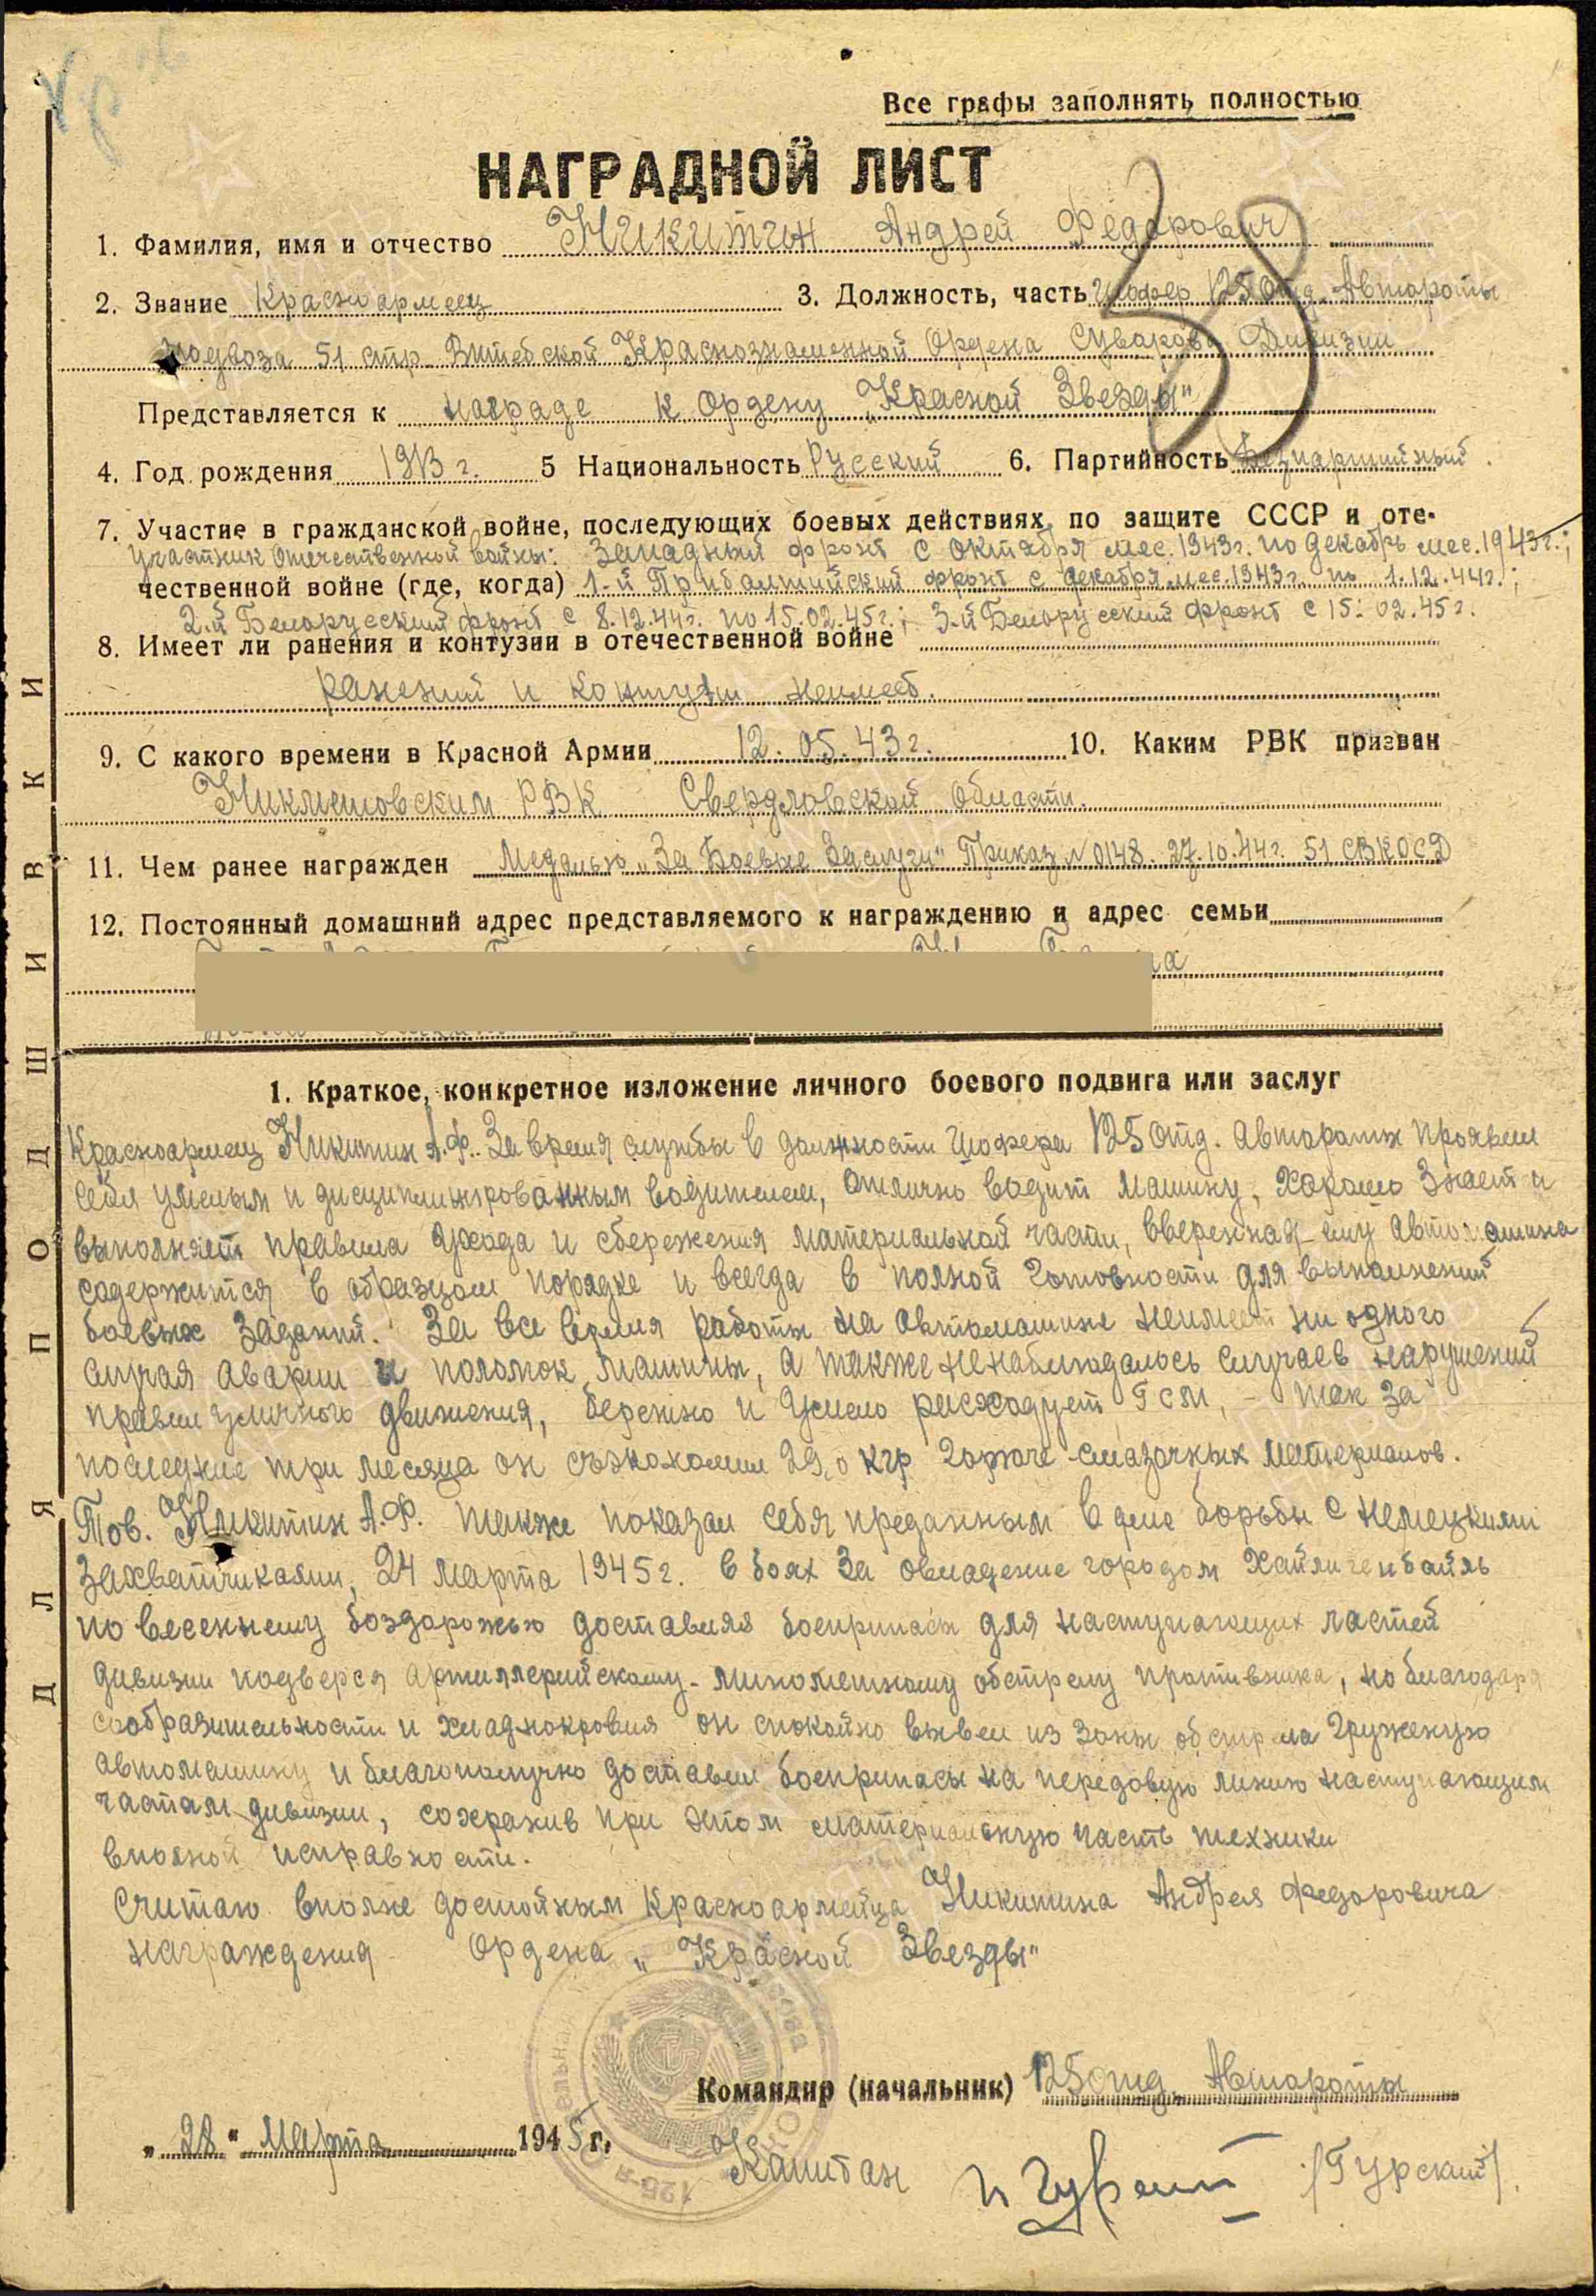 Все графы заполнять полностью
НАГРАДНОЙ ЛИСТ
1. Фамилия, имя и отчество Никитин Андрей Федорович
2. Звание Красноармеец 3. Должность, часть Шофер 125 отд. Автороты
подвоза 51 стр. Витебской Краснознаменной Ордена Суворова Дивизии
38
Представляется к награде к Ордену „Красной Звезды"
4. Год рождения 1913 г. 5 Национальность Русский 6. Партийность Безпартийный.
7. Участие в гражданской войне, последующих боевых действиях по защите СССР и оте-
Участник Отечественной войны: Западный фронт с октября мес. 1943г. по декабрь мес. 1943г.;
чественной войне (где, когда) 1-й Прибалтийский фронт с декабря мес. 1943г. по 1.12.44г.;
2-й Белорусский фронт с 8.12.44г. по 15.02.45г.; 3-й Белорусский фронт с 15.02.45г.
8. Имеет ли ранения и контузии в отечественной войне
ранений и контузии неимеет.
9. С какого времени в Красной Армии 12.05.43г. 10. Каким РВК призван
РВК Свердловской области.
11. Чем ранее награжден Медалью „За Боевые Заслуги" Приказ N 0148. 27.10.44г. 51 СВКОСД
12. Постоянный домашний адрес представляемого к награждению и адрес семьи
1. Краткое, конкретное изложение личного боевого подвига или заслуг
Красноармеец Никитин А.Ф. За время службы в должности Шофера 125 отд. Автороты проявил
себя умелым и дисциплинированным водителем, отлично водит машину, хорошо знает и
выполняет правила ухода и сбережения материальной части, вверенная ему автомашина
содержится в образцом порядке и всегда в полной готовности для выполнений
боевых заданий. За все время работы на автомашине неимеет ни одного
случая аварии и поломок машины, а также ненаблюдалось случаев нарушений
правил уличного движения, бережно и умело расходует ГСМ, – так за
последние три месяца он съэкономил 29,0 кгр горюче-смазочных материалов.
Тов. Никитин А.Ф. также показал себя преданным в деле борьбы с немецкими
захватчиками, 24 марта 1945г. в боях за овладение городом Хайлигенбайль
по весеннему боздорожью доставляя боеприпасы для наступающих частей
дивизии подверся артиллерийскому-минометному обстрелу противника, но благодаря
сообразительности и хладнокровия он спокойно вывел из зоны обстрела груженую
автомашину и благополучно доставил боеприпасы на передовую линию наступающим
частям дивизии, сохранив при этом материальную часть техники
вполной исправности.
Считаю вполне достойным Красноармейца Никитина Андрея Федоровича
награждения Ордена „Красной Звезды"
Командир (начальник) 125 отд. Автороты
„28" Марта 1945г.
Капитан /Гурский/.
ДЛЯ ПОДШИВКИ